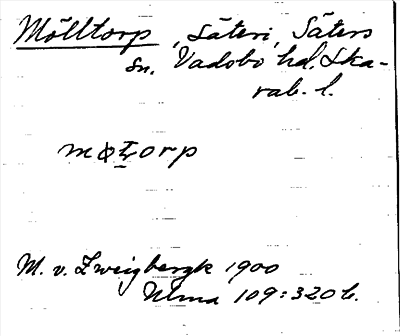 Mölltorp, säteri, Säters
sn. Vadsbo hd. Ska-
rab. l.
møt̲orp
M. v. Zweigbergk 1900
Ulma 109:320 b.